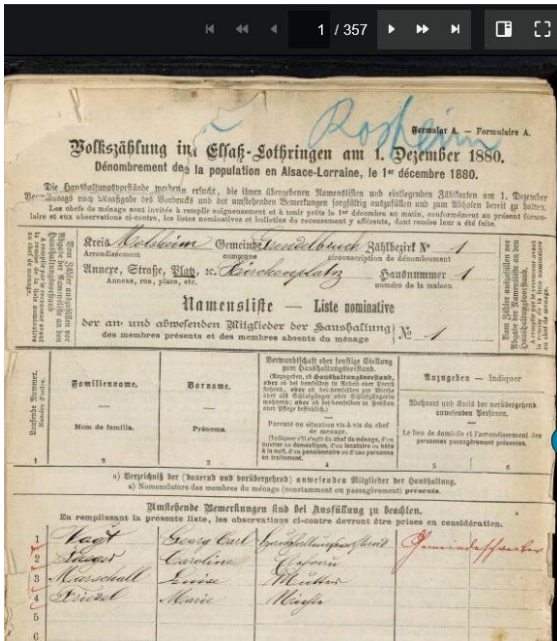 1 / 357
Rosheim
Formular A. — Formulaire A.
Volkszählung in Elsaß-Lothringen am 1. Dezember 1880.
Dénombrement de la population en Alsace-Lorraine, le 1er décembre 1880.
Die Haushaltungsvorstände werden ersucht, die ihnen übergebenen Namenslisten und einliegenden Zählkarten am 1. Dezember
Vormittags nach Maßgabe des Vordrucks und der umstehenden Bemerkungen sorgfältig auszufüllen und zum Abholen bereit zu halten.
Les chefs de ménage sont invités à remplir soigneusement et à tenir prêts le 1er décembre au matin, conformément au présent formu-
laire et aux observations ci-contre, les listes nominatives et bulletins de recensement y afférents, dont remise leur a été faite.
Kreis Molsheim Gemeinde Grendelbruch Zählbezirk No 1
Arrondissement commune circonscription de dénombrement
Annexe, Straße, Platz, ec. Kirchenplatz Hausnummer 1
Annexe, rue, place, etc. numéro de la maison
Namensliste — Liste nominative
der an- und abwesenden Mitglieder der Haushaltung No 1
des membres présents et des membres absents du ménage
Laufende Nummer.
Numéro d'ordre.
Familienname.
Nom de famille.
Vorname.
Prénoms.
Verwandtschaft oder sonstige Stellung
zum Haushaltungsvorstand.
Parenté ou situation vis-à-vis du chef
de ménage.
Anzugeben — Indiquer
Wohnort und Kreis der vorübergehend
anwesenden Personen.
Le lieu de domicile et l'arrondissement des
personnes passagèrement présentes.
1 2 3 4 5 6
a) Verzeichniß der (dauernd und vorübergehend) anwesenden Mitglieder der Haushaltung.
a) Nomenclature des membres du ménage (constamment ou passagèrement) présents.
Umstehende Bemerkungen sind bei Ausfüllung zu beachten.
En remplissant la présente liste, les observations ci-contre devront être prises en considération.
1 Vogt Georg Carl Haushaltungsvorstand Gemeindeschreiber
2 Caroline
3 Marschall Luise Mutter
4 Marie Nichte
5
6